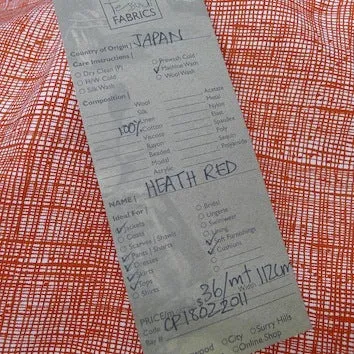 FABRICS
Country of Origin | JAPAN
Care Instructions |
Dry Clean (P) Prewash Cold
H/W Cold ✓ Machine Wash
Silk Wash Wool Wash
Composition |
Wool Acetate
Silk Metal
Linen Nylon
100% Cotton Spandex
Viscose Poly
Rayon
Beaded
Modal
Acrylic
NAME | HEATH RED
Ideal For |
✓ Jackets Bridal
Coats Lingerie
Scarves | Shawls Swimwear
✓ Pants | Shorts Lining
✓ Dresses ✓ Soft Furnishings
✓ Skirts ✓ Cushions
✓ Tops
Shirts
PRICE $36/mt Width 112cm
Code OP18022011
Bay #
City Surry Hills
Online Shop